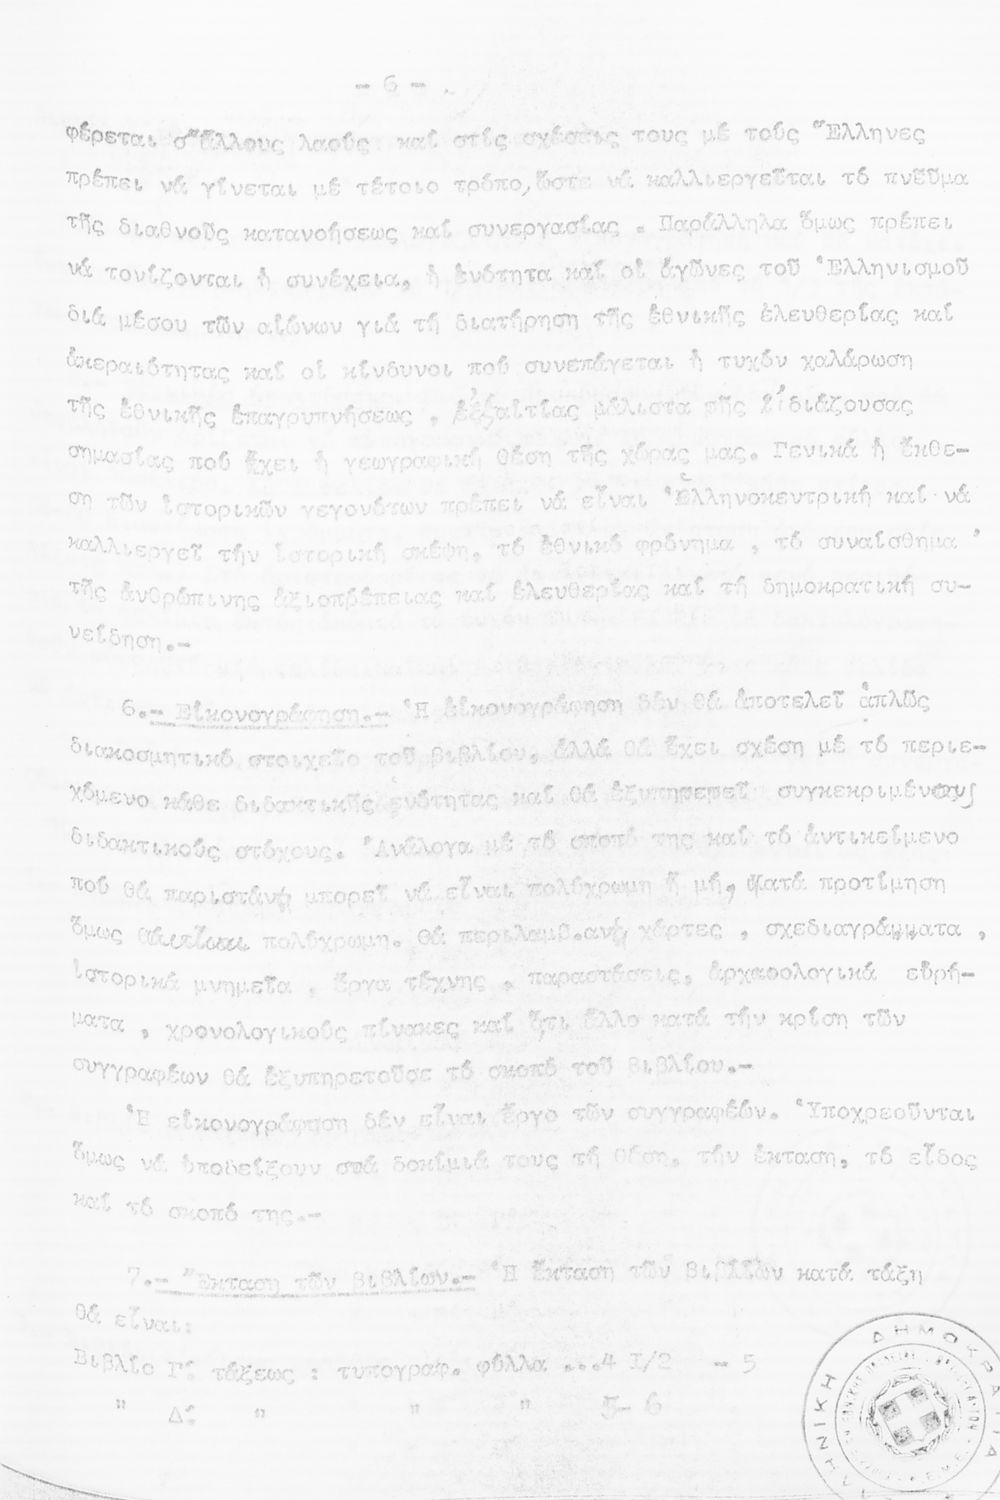 - 6 -
φέρεται σ' ἄλλους λαούς καί στίς σχέσεις τους μέ τούς Ἕλληνες
πρέπει νά γίνεται μέ τέτοιο τρόπο, ὥστε νά καλλιεργεῖται τό πνεῦμα
τῆς διαθνοῦς κατανοήσεως καί συνεργασίας . Παράλληλα ὅμως πρέπει
νά τονίζονται ἡ συνέχεια, ἡ ἑνότητα καί οἱ ἀγῶνες τοῦ Ἑλληνισμοῦ
διά μέσου τῶν αἰώνων γιά τή διατήρηση τῆς ἐθνικῆς ἐλευθερίας καί
ἀκεραιότητας καί οἱ κίνδυνοι πού συνεπάγεται ἡ τυχόν χαλάρωση
τῆς ἐθνικῆς ἐπαγρυπνήσεως , ἐξαιτίας μάλιστα τῆς ἰδιάζουσας
σημασίας πού ἔχει ἡ γεωγραφική θέση τῆς χώρας μας. Γενικά ἡ ἔκθε-
ση τῶν ἱστορικῶν γεγονότων πρέπει νά εἶναι Ἑλληνοκεντρική καί νά
καλλιεργεῖ τήν ἱστορική σκέψη, τό ἐθνικό φρόνημα , τό συναίσθημα
τῆς ἀνθρώπινης ἀξιοπρέπειας καί ἐλευθερίας καί τή δημοκρατική συ-
νείδηση.-
6.- Εἰκονογράφηση.- Ἡ εἰκονογράφηση δέν θά ἀποτελεῖ ἁπλῶς
διακοσμητικό στοιχεῖο τοῦ βιβλίου, ἀλλά θά ἔχει σχέση μέ τό περιε-
χόμενο κάθε διδακτικῆς ἑνότητας καί θά ἐξυπηρετεῖ συγκεκριμένους
διδακτικούς στόχους. Ἀνάλογα μέ τό σκοπό της καί τό ἀντικείμενο
πού θά παριστάνῃ μπορεῖ νά εἶναι πολύχρωμη ἤ μή, κατά προτίμηση
ὅμως πολύχρωμη. Θά περιλαμβ.ανῃ χάρτες , σχεδιαγράμματα ,
ἱστορικά μνημεῖα , ἔργα τέχνης , παραστάσεις, ἀρχαιολογικά εὑρή-
ματα , χρονολογικούς πίνακες καί ὅ,τι ἄλλο κατά τήν κρίση τῶν
συγγραφέων θά ἐξυπηρετοῦσε τό σκοπό τοῦ βιβλίου.-
Ἡ εἰκονογράφηση δέν εἶναι ἔργο τῶν συγγραφέων. Ὑποχρεοῦνται
ὅμως νά ὑποδείξουν στά δοκίμιά τους τή θέση, τήν ἔκταση, τό εἶδος
καί τό σκοπό της.-
7.- Ἔκταση τῶν βιβλίων.- Ἡ ἔκταση τῶν βιβλίων κατά τάξη
θά εἶναι:
Βιβλίο Γ΄. τάξεως : τυπογραφ. φύλλα ...4 1/2 - 5
" Δ΄. " " " 5- 6
ΕΛΛΗΝΙΚΗ ΔΗΜΟΚΡΑΤΙΑ